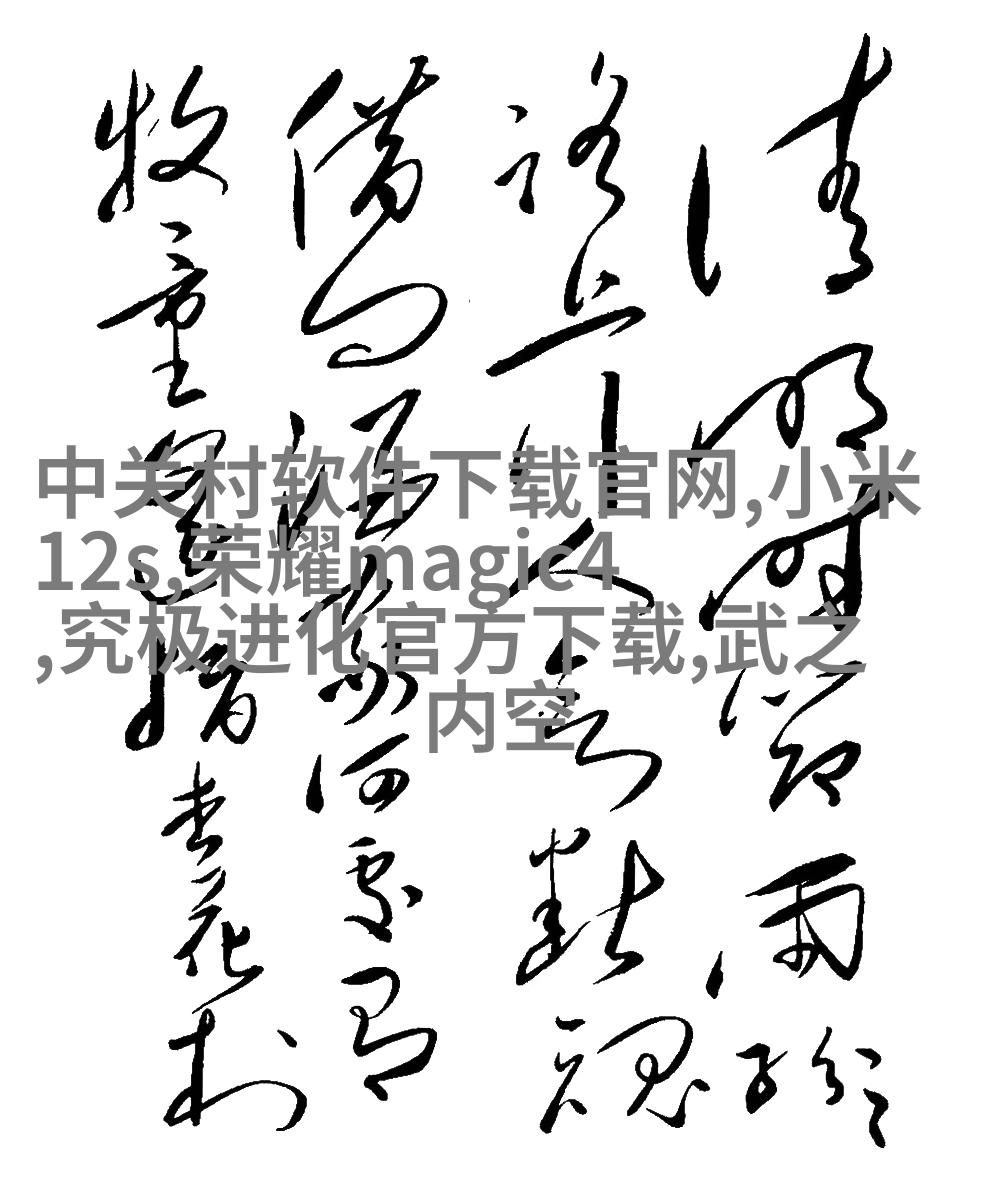 清明時節雨紛紛
路上行人欲斷魂
借问酒家何處有
牧童遥指杏花村
中关村软件下载官网,小米
12s,荣耀magic4
,究极进化官方下载,武之
内空